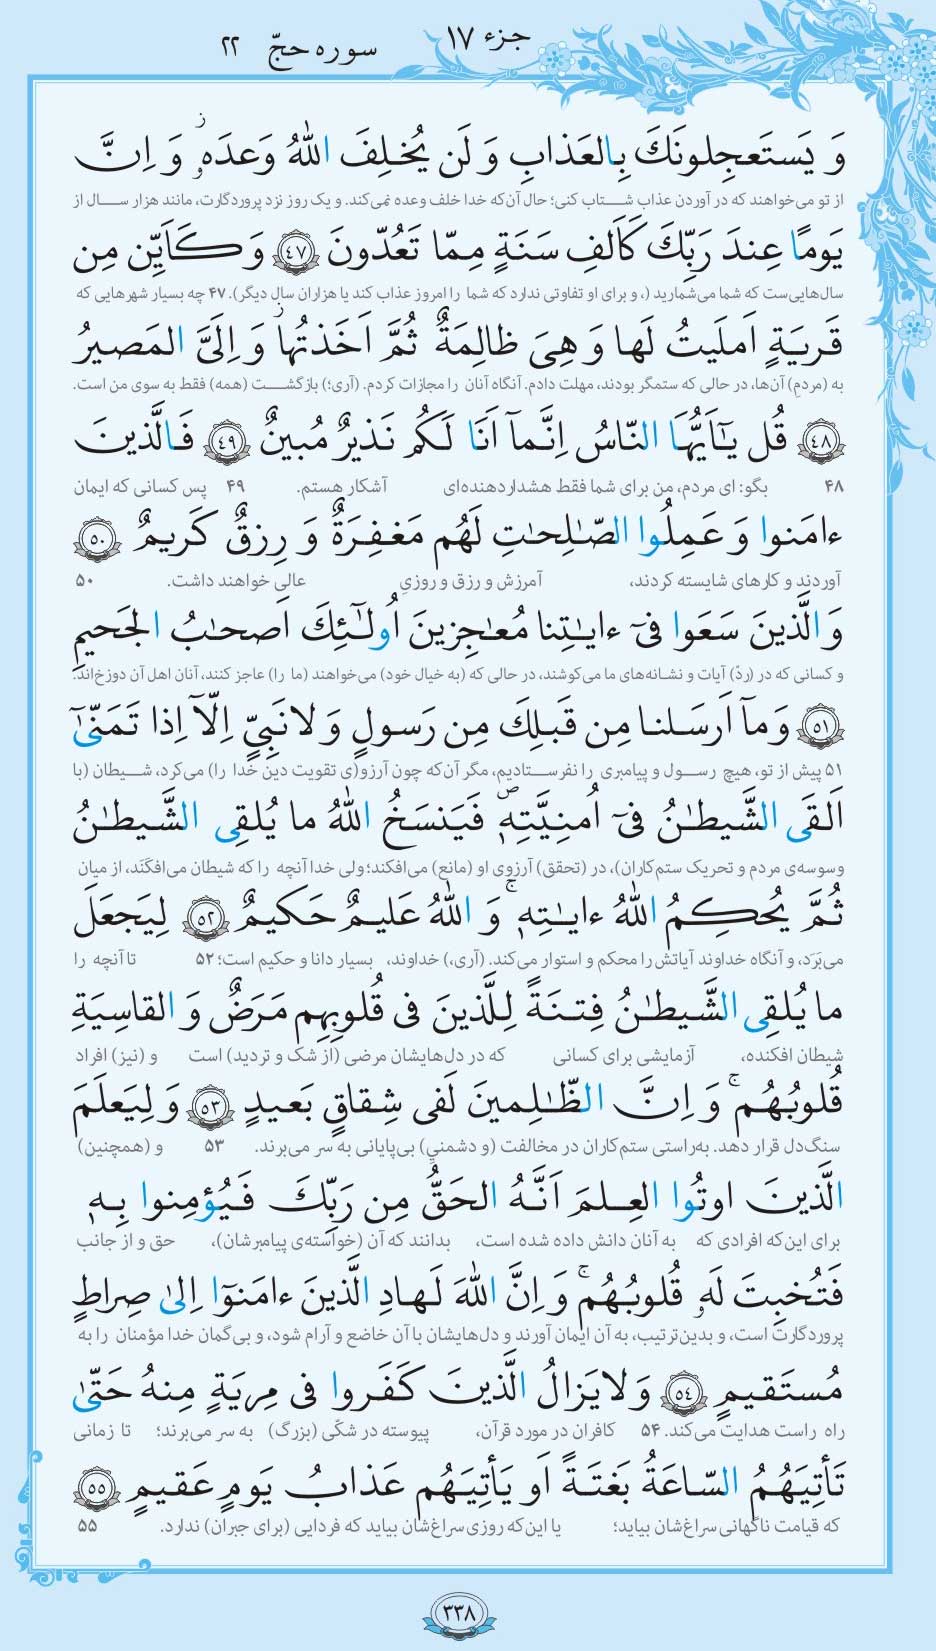 جزء ۱۷
سوره حجّ ۲۲
وَ يَستَعجِلونَكَ بِالعَذابِ وَ لَن يُخلِفَ اللهُ وَعدَهٗ ۚ وَ اِنَّ
از تو می‌خواهند که در آوردن عذاب شـــتاب کنی؛ حال آن‌که خدا خلف وعده نمی‌کند. و یک روز نزد پروردگارت، مانند هزار ســـال از
يَومًا عِندَ رَبِّكَ كَاَلفِ سَنَةٍ مِمّا تَعُدّونَ ﴿۴۷﴾ وَ كَاَيِّن مِن
سال‌هایی‌ست که شما می‌شمارید (، و برای او تفاوتی ندارد که شما را امروز عذاب کند یا هزاران سال دیگر). ۴۷ چه بسیار شهرهایی که
قَريَةٍ اَملَيتُ لَها وَ هِىَ ظالِمَةٌ ثُمَّ اَخَذتُها وَ اِلَىَّ المَصيرُ
به (مردم) آن‌ها، در حالی که ستمگر بودند، مهلت دادم. آنگاه آنان را مجازات کردم. (آری؛) بازگشـــت (همه) فقط به سوی من است.
﴿۴۸﴾ قُل يٰٓاَيُّهَا النّاسُ اِنَّمآ اَنَا لَكُم نَذيرٌ مُبينٌ ﴿۴۹﴾ فَالَّذينَ
۴۸ بگو: ای مردم، من برای شما فقط هشداردهنده‌ای آشکار هستم. ۴۹ پس کسانی که ایمان
ءامَنوا وَ عَمِلُوا الصّٰلِحٰتِ لَهُم مَغفِرَةٌ وَ رِزقٌ كَريمٌ ﴿۵۰﴾
آوردند و کارهای شایسته کردند، آمرزش و رزق و روزیِ عالی خواهند داشت. ۵۰
وَ الَّذينَ سَعَوا فىٓ ءايٰتِنا مُعٰجِزينَ اُولٰٓئِكَ اَصحٰبُ الجَحيمِ
و کسانی که در (ردّ) آیات و نشانه‌های ما می‌کوشند، در حالی که (به خیال خود) می‌خواهند (ما را) عاجز کنند، آنان اهل آن دوزخ‌اند.
﴿۵۱﴾ وَ مآ اَرسَلنا مِن قَبلِكَ مِن رَسولٍ وَ لا نَبِىٍّ اِلّآ اِذا تَمَنّىٰٓ
۵۱ پیش از تو، هیچ رسـول و پیامبری را نفرسـتادیم، مگر آن‌که چون آرزو(ی تقویت دین خدا را) می‌کرد، شـیطان (با
اَلقَى الشَّيطٰنُ فىٓ اُمنِيَّتِهٖ فَيَنسَخُ اللهُ ما يُلقِى الشَّيطٰنُ
وسوسه‌ی مردم و تحریک ستم‌کاران)، در (تحقق) آرزوی او (مانع) می‌افکند؛ ولی خدا آنچه را که شیطان می‌افکَنَد، از میان
ثُمَّ يُحكِمُ اللهُ ءايٰتِهٖ ۚ وَ اللهُ عَليمٌ حَكيمٌ ﴿۵۲﴾ لِيَجعَلَ
می‌بَرَد، و آنگاه خداوند آیاتش را محکم و استوار می‌کند. (آری،) خداوند، بسیار دانا و حکیم است؛ ۵۲ تا آنچه را
ما يُلقِى الشَّيطٰنُ فِتنَةً لِلَّذينَ فى قُلوبِهِم مَرَضٌ وَ القاسِيَةِ
شیطان افکنده، آزمایشی برای کسانی که در دل‌هایشان مرضی (از شک و تردید) است و (نیز) افراد
قُلوبُهُم ۚ وَ اِنَّ الظّٰلِمينَ لَفى شِقاقٍ بَعيدٍ ﴿۵۳﴾ وَ لِيَعلَمَ
سنگ‌دل قرار دهد. به‌راستی ستم‌کاران در مخالفت (و دشمنیِ) بی‌پایانی به سر می‌برند. ۵۳ و (همچنین)
الَّذينَ اوتُوا العِلمَ اَنَّهُ الحَقُّ مِن رَبِّكَ فَيُؤمِنوا بِهٖ
برای این‌که افرادی که به آنان دانش داده شده است، بدانند که آن (خواسته‌ی پیامبرشان)، حق و از جانب
فَتُخبِتَ لَهٗ قُلوبُهُم ۚ وَ اِنَّ اللهَ لَهادِ الَّذينَ ءامَنوٓا اِلىٰ صِراطٍ
پروردگارت است، و بدین‌ترتیب، به آن ایمان آورند و دل‌هایشان با آن خاضع و آرام شود، و بی‌گمان خدا مؤمنان را به
مُستَقيمٍ ﴿۵۴﴾ وَ لا يَزالُ الَّذينَ كَفَروا فى مِريَةٍ مِنهُ حَتّىٰ
راه راست هدایت می‌کند. ۵۴ کافران در مورد قرآن، پیوسته در شکّی (بزرگ) به سر می‌برند؛ تا زمانی
تَأتِيَهُمُ السّاعَةُ بَغتَةً اَو يَأتِيَهُم عَذابُ يَومٍ عَقيمٍ ﴿۵۵﴾
که قیامت ناگهانی سراغ‌شان بیاید؛ یا این‌که روزی سراغ‌شان بیاید که فردایی (برای جبران) ندارد. ۵۵
۳۳۸